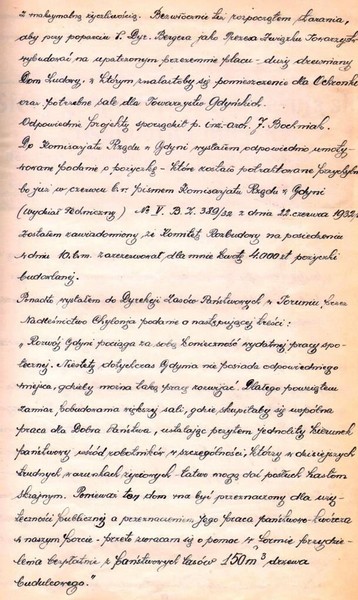 z maksymalną życzliwością. Bezzwłocznie też rozpocząłem starania,
aby przy poparciu P. Dyr. Bergera jako Prezesa Związku Towarzystw
wybudować na upatrzonym przezemnie placu - duży drewniany
Dom Ludowy, z którym znalazłoby się pomieszczenie dla Ochronki
oraz potrzebne sale dla Towarzystw Gdyńskich.
Odpowiednie projekty sporządził p. inż. arch. J. Bochniak.
Do Komisarjatu Rządu w Gdyni wysłałem odpowiednio umoty-
wowane podanie o pożyczkę - które zostało potraktowane przychylnie
bo już w czerwcu b.r. pismem Komisarjatu Rządu w Gdyni
(Wydział Techniczny) № V. B. Z. 389/32 z dnia 22 czerwca 1932
zostałem zawiadomiony, że Komitet Rozbudowy na posiedzeniu
w dniu 10. b.m. zarezerwował dla mnie kwotę 4.000 zł pożyczki
budowlanej.
Ponadto wysłałem do Dyrekcji Lasów Państwowych w Toruniu, przez
Nadleśnictwo Chylonja podanie o następującej treści:
„Rozwój Gdyni pociąga za sobą konieczność wydatnej pracy spo-
łecznej. Niestety dotychczas Gdynia nie posiada odpowiedniego
miejsca, gdzieby można taką pracę rozwijać. Dlatego powziąłem
zamiar wybudowania większej sali, gdzie skupiałaby się wspólna
praca dla Dobra Państwa, ustalając przytem jednolity kierunek
państwowy wśród robotników w szczególności, którzy w dzisiejszych
trudnych warunkach życiowych - łatwo mogą dać posłuch hasłom
skrajnym. Ponieważ ten dom ma być przeznaczony dla uży-
teczności publicznej a przeznaczeniem jego praca państwowo-twórcza
w naszym Porcie - przeto zwracam się o pomoc w formie przydzie-
lenia bezpłatnie z państwowych lasów 150 m³ drzewa
budulcowego."